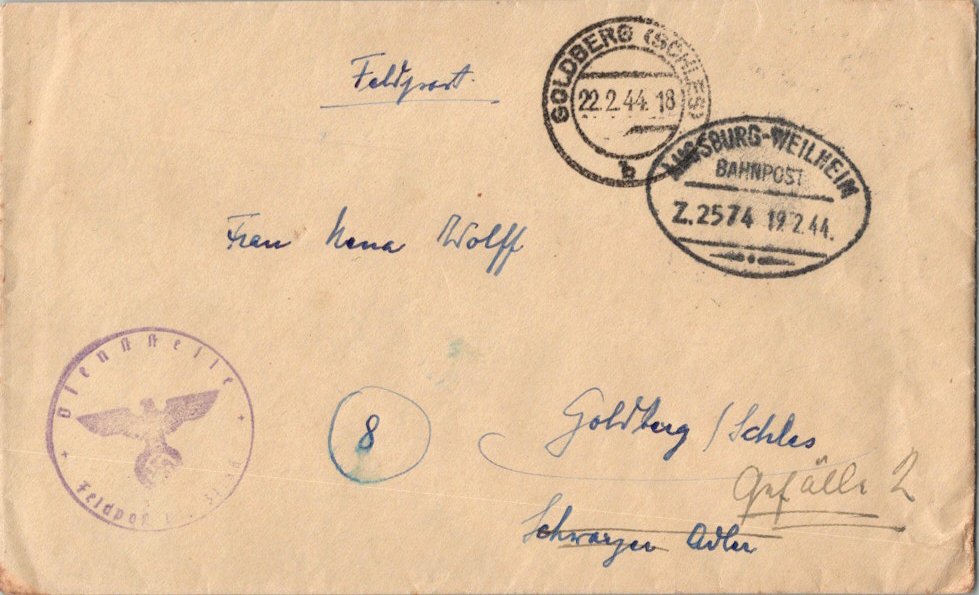 Feldpost.
GOLDBERG (SCHLES)
22.2.44.18
b
AUGSBURG-WEILHEIM
BAHNPOST
Z.2574 19.2.44.
Frau Nena Wolff
Dienststelle
Feldpost
8
Goldberg/Schles
Gefälle 2
Schwarzer Adler